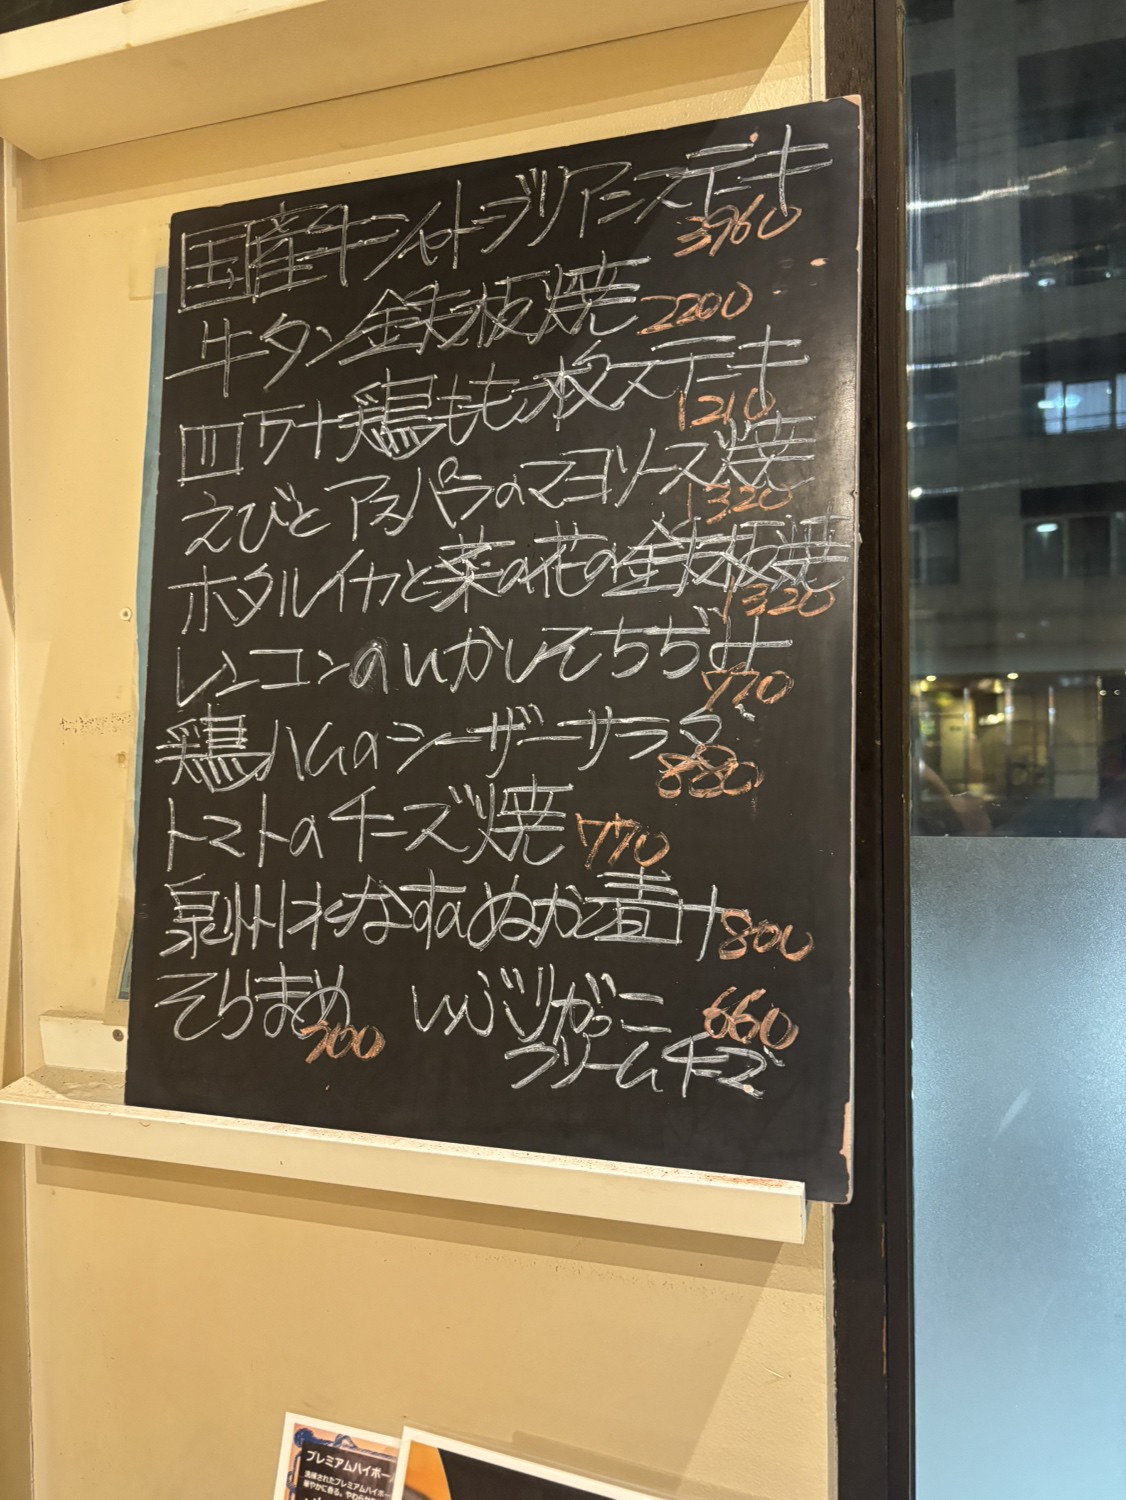 国産牛シャトーブリアンステーキ 3960
牛タン鉄板焼 2200
四万十鶏もも一枚ステーキ 1210
えびとアスパラのマヨソース焼 1320
ホタルイカと菜の花の鉄板焼 1320
レンコンのいかしそちぢみ 770
鶏ハムのシーザーサラダ 880
トマトのチーズ焼 770
泉州水なすのぬか漬け 800
そらまめ 700 いぶりがっこ 660
クリームチーズ
プレミアムハイボー
洗練されたプレミアムハイボー
華やかに香る、やわらか